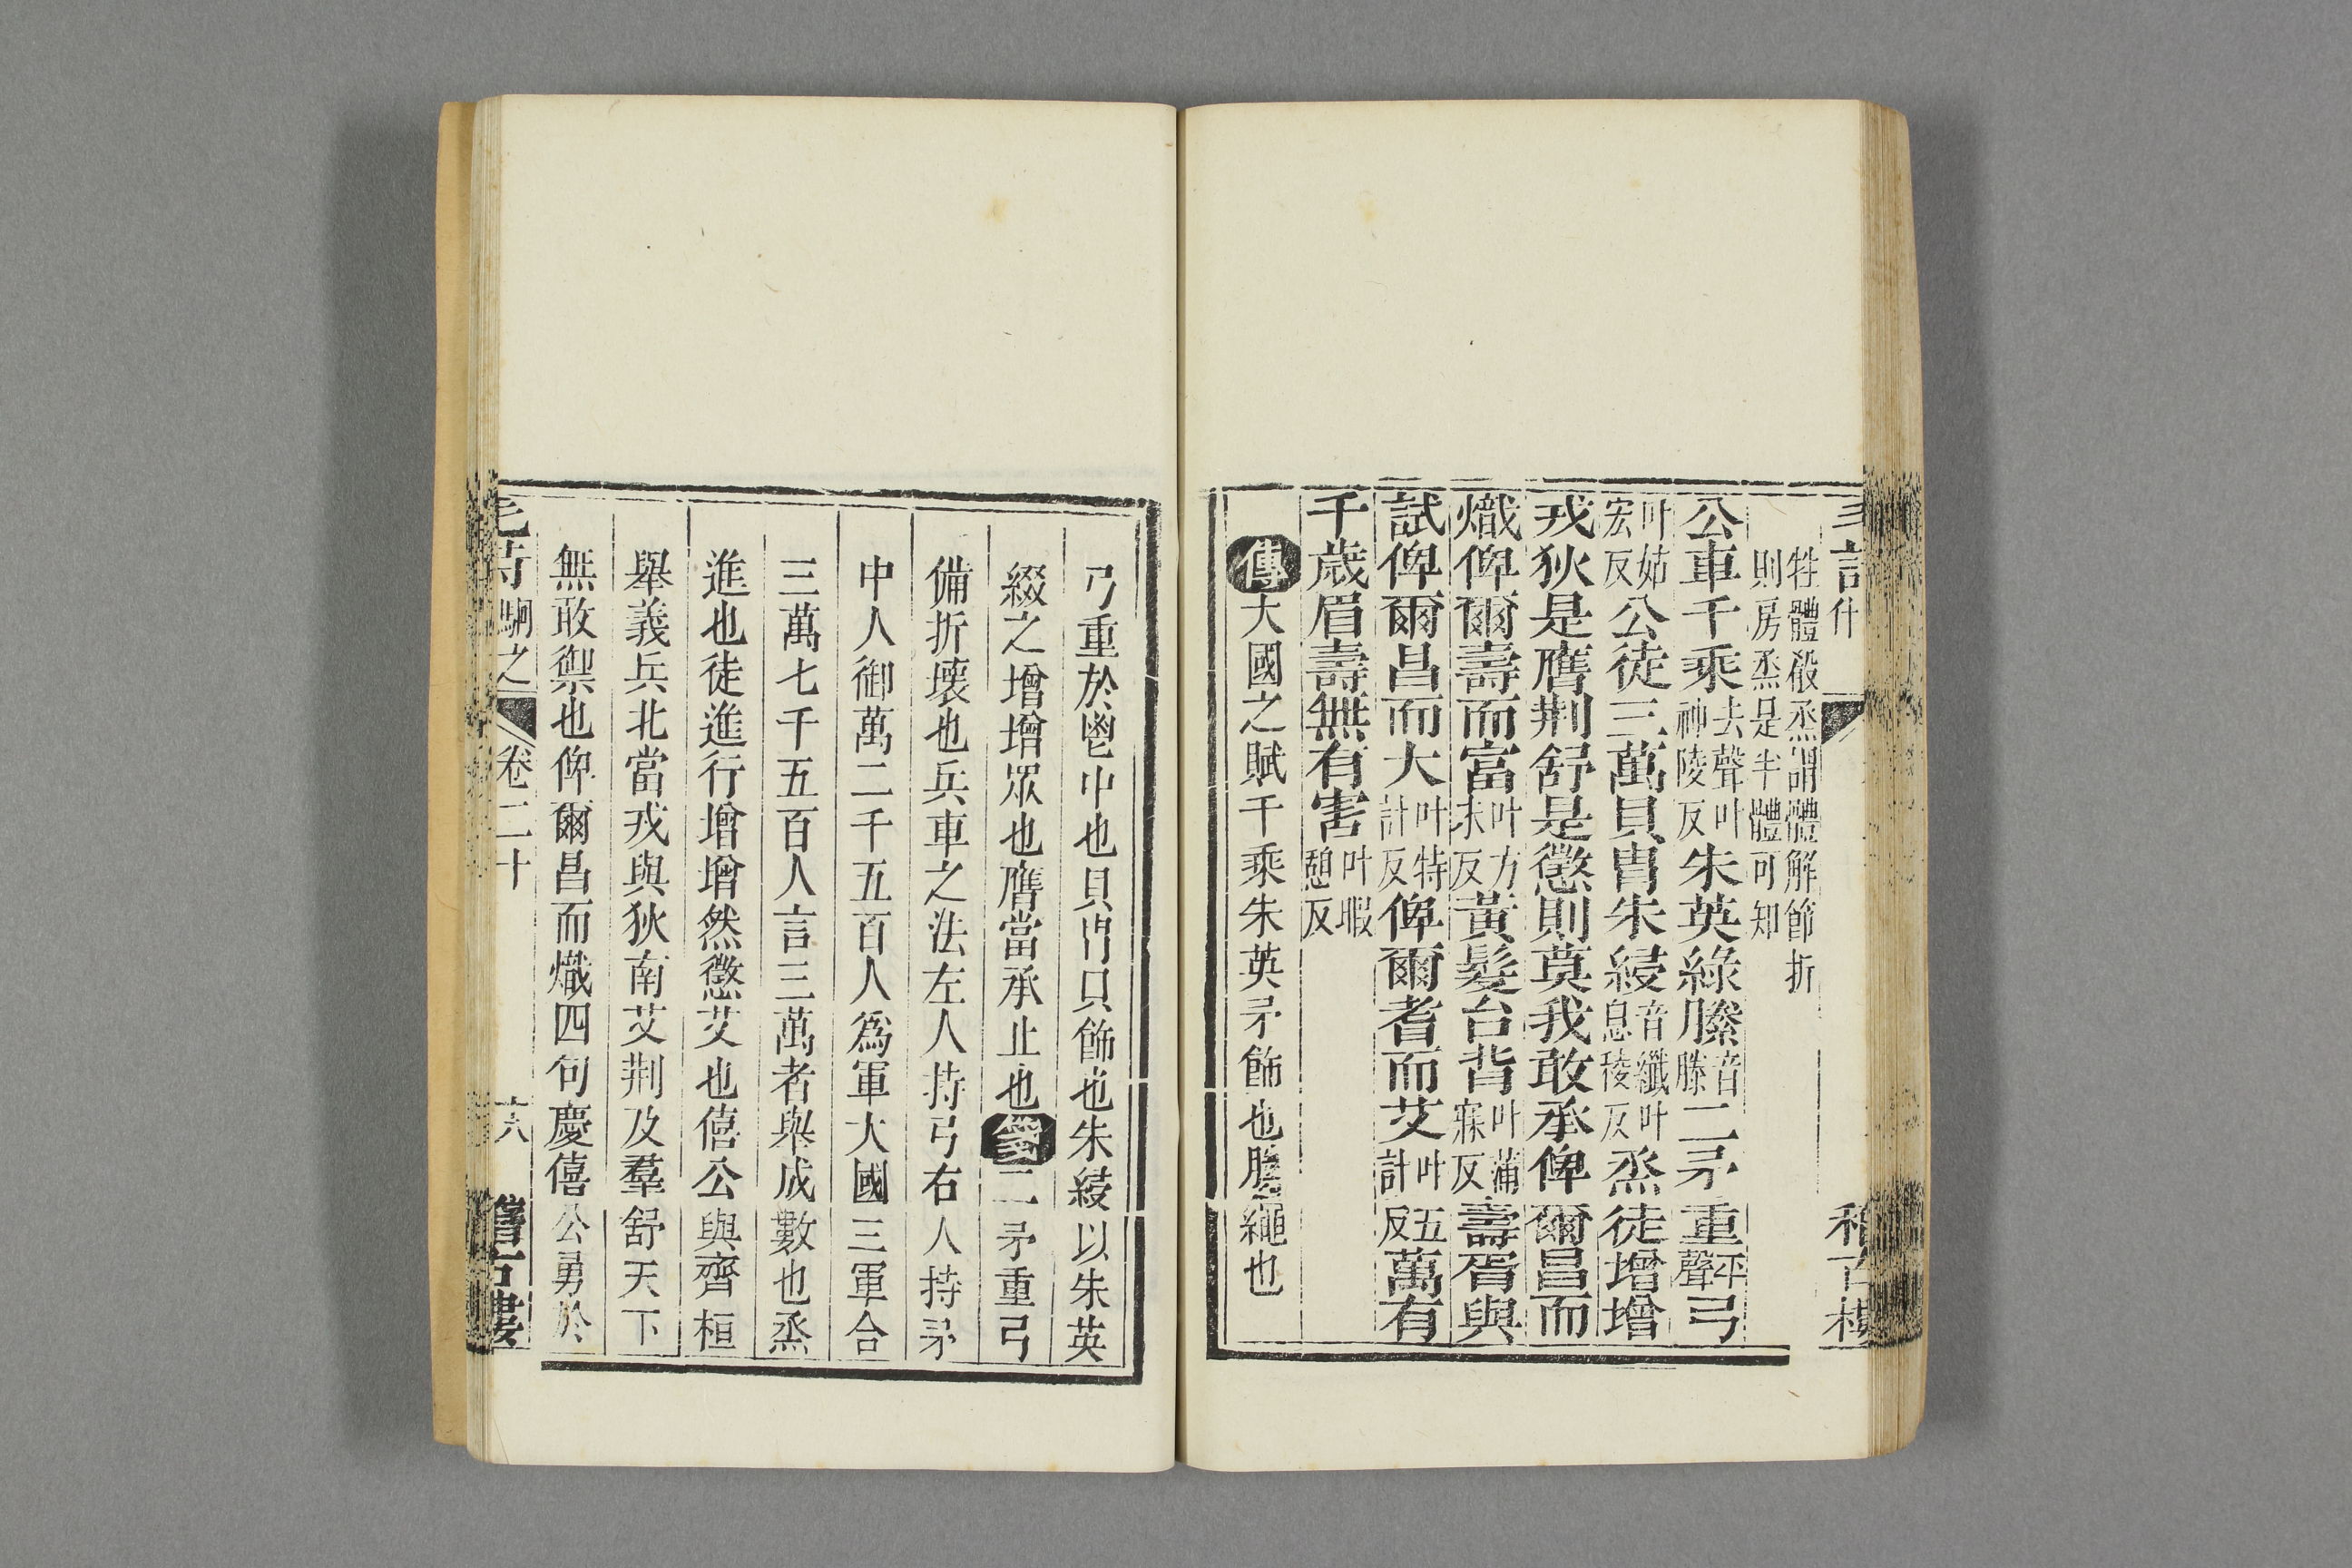 詩 什
牲體殽烝謂體解節折
則房烝是半體可知
公車千乘去聲叶神陵反朱英綠縢音滕二矛重平聲弓
叶姑宏反公徒三萬貝冑朱綅音纖叶息稜反烝徒增增
戎狄是膺荆舒是懲則莫我敢承俾爾昌而
熾俾爾壽而富叶方未反黃髮台背叶蒲寐反壽胥與
試俾爾昌而大叶特計反俾爾耆而艾叶五計反萬有
千歲眉壽無有害叶暇憩反
傳大國之賦千乘朱英矛飾也縢繩也
弓重於鬯中也貝冑貝飾也朱綅以朱英
綴之增增眾也膺當承止也箋二矛重弓
備折壞也兵車之法左人持弓右人持矛
中人御萬二千五百人爲軍大國三軍合
三萬七千五百人言三萬者舉成數也烝
進也徒進行增增然懲艾也僖公與齊桓
舉義兵北當戎與狄南艾荆及羣舒天下
無敢禦也俾爾昌而熾四句慶僖公勇於
毛詩 駉之 卷二十 十六 稽古樓